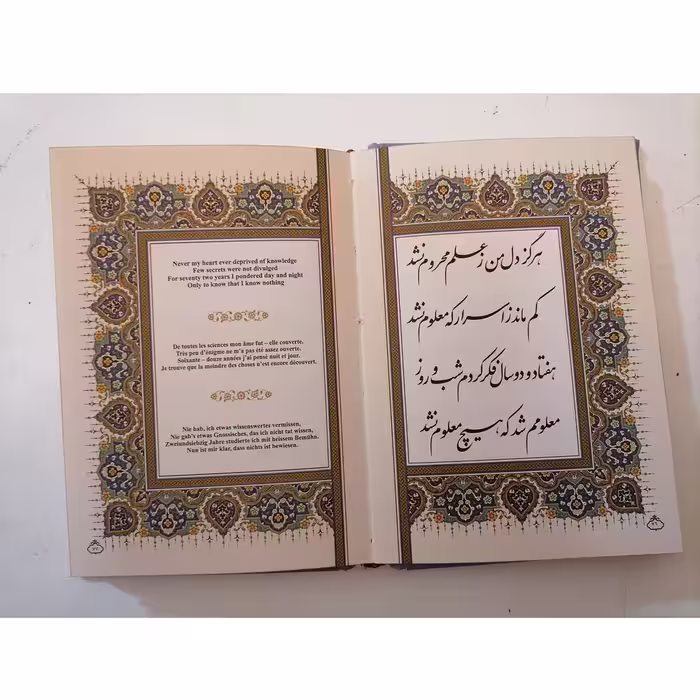 Never my heart ever deprived of knowledge
Few secrets were not divulged
For seventy two years I pondered day and night
Only to know that I know nothing
De toutes les sciences mon âme fut – elle couverte.
Très peu d'énigme ne m'a pas été assez ouverte.
Soixante – douze années j'ai pensé nuit et jour.
Je trouve que la moindre des choses n'est encore découvert.
Nie hab, ich etwas wissenswertes vermissen,
Nie gab's etwas Gnossisches, das ich nicht tat wissen,
Zweiundsiebzig Jahre studierte ich mit heissem Bemühn.
Nun ist mir klar, dass nichts ist bewiesen.
هرگز دل من ز علم محروم نشد
کم ماند ز اسرار که معلوم نشد
هفتاد و دو سال فکر کردم شب و روز
معلومم شد که هیچ معلوم نشد